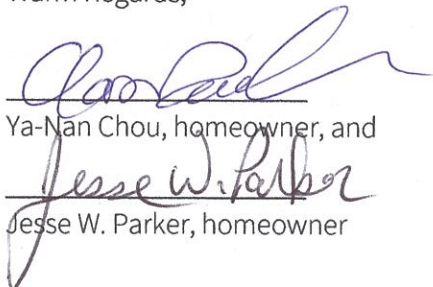 Ya-Nan Chou, homeowner, and
Jesse W. Parker
Jesse W. Parker, homeowner